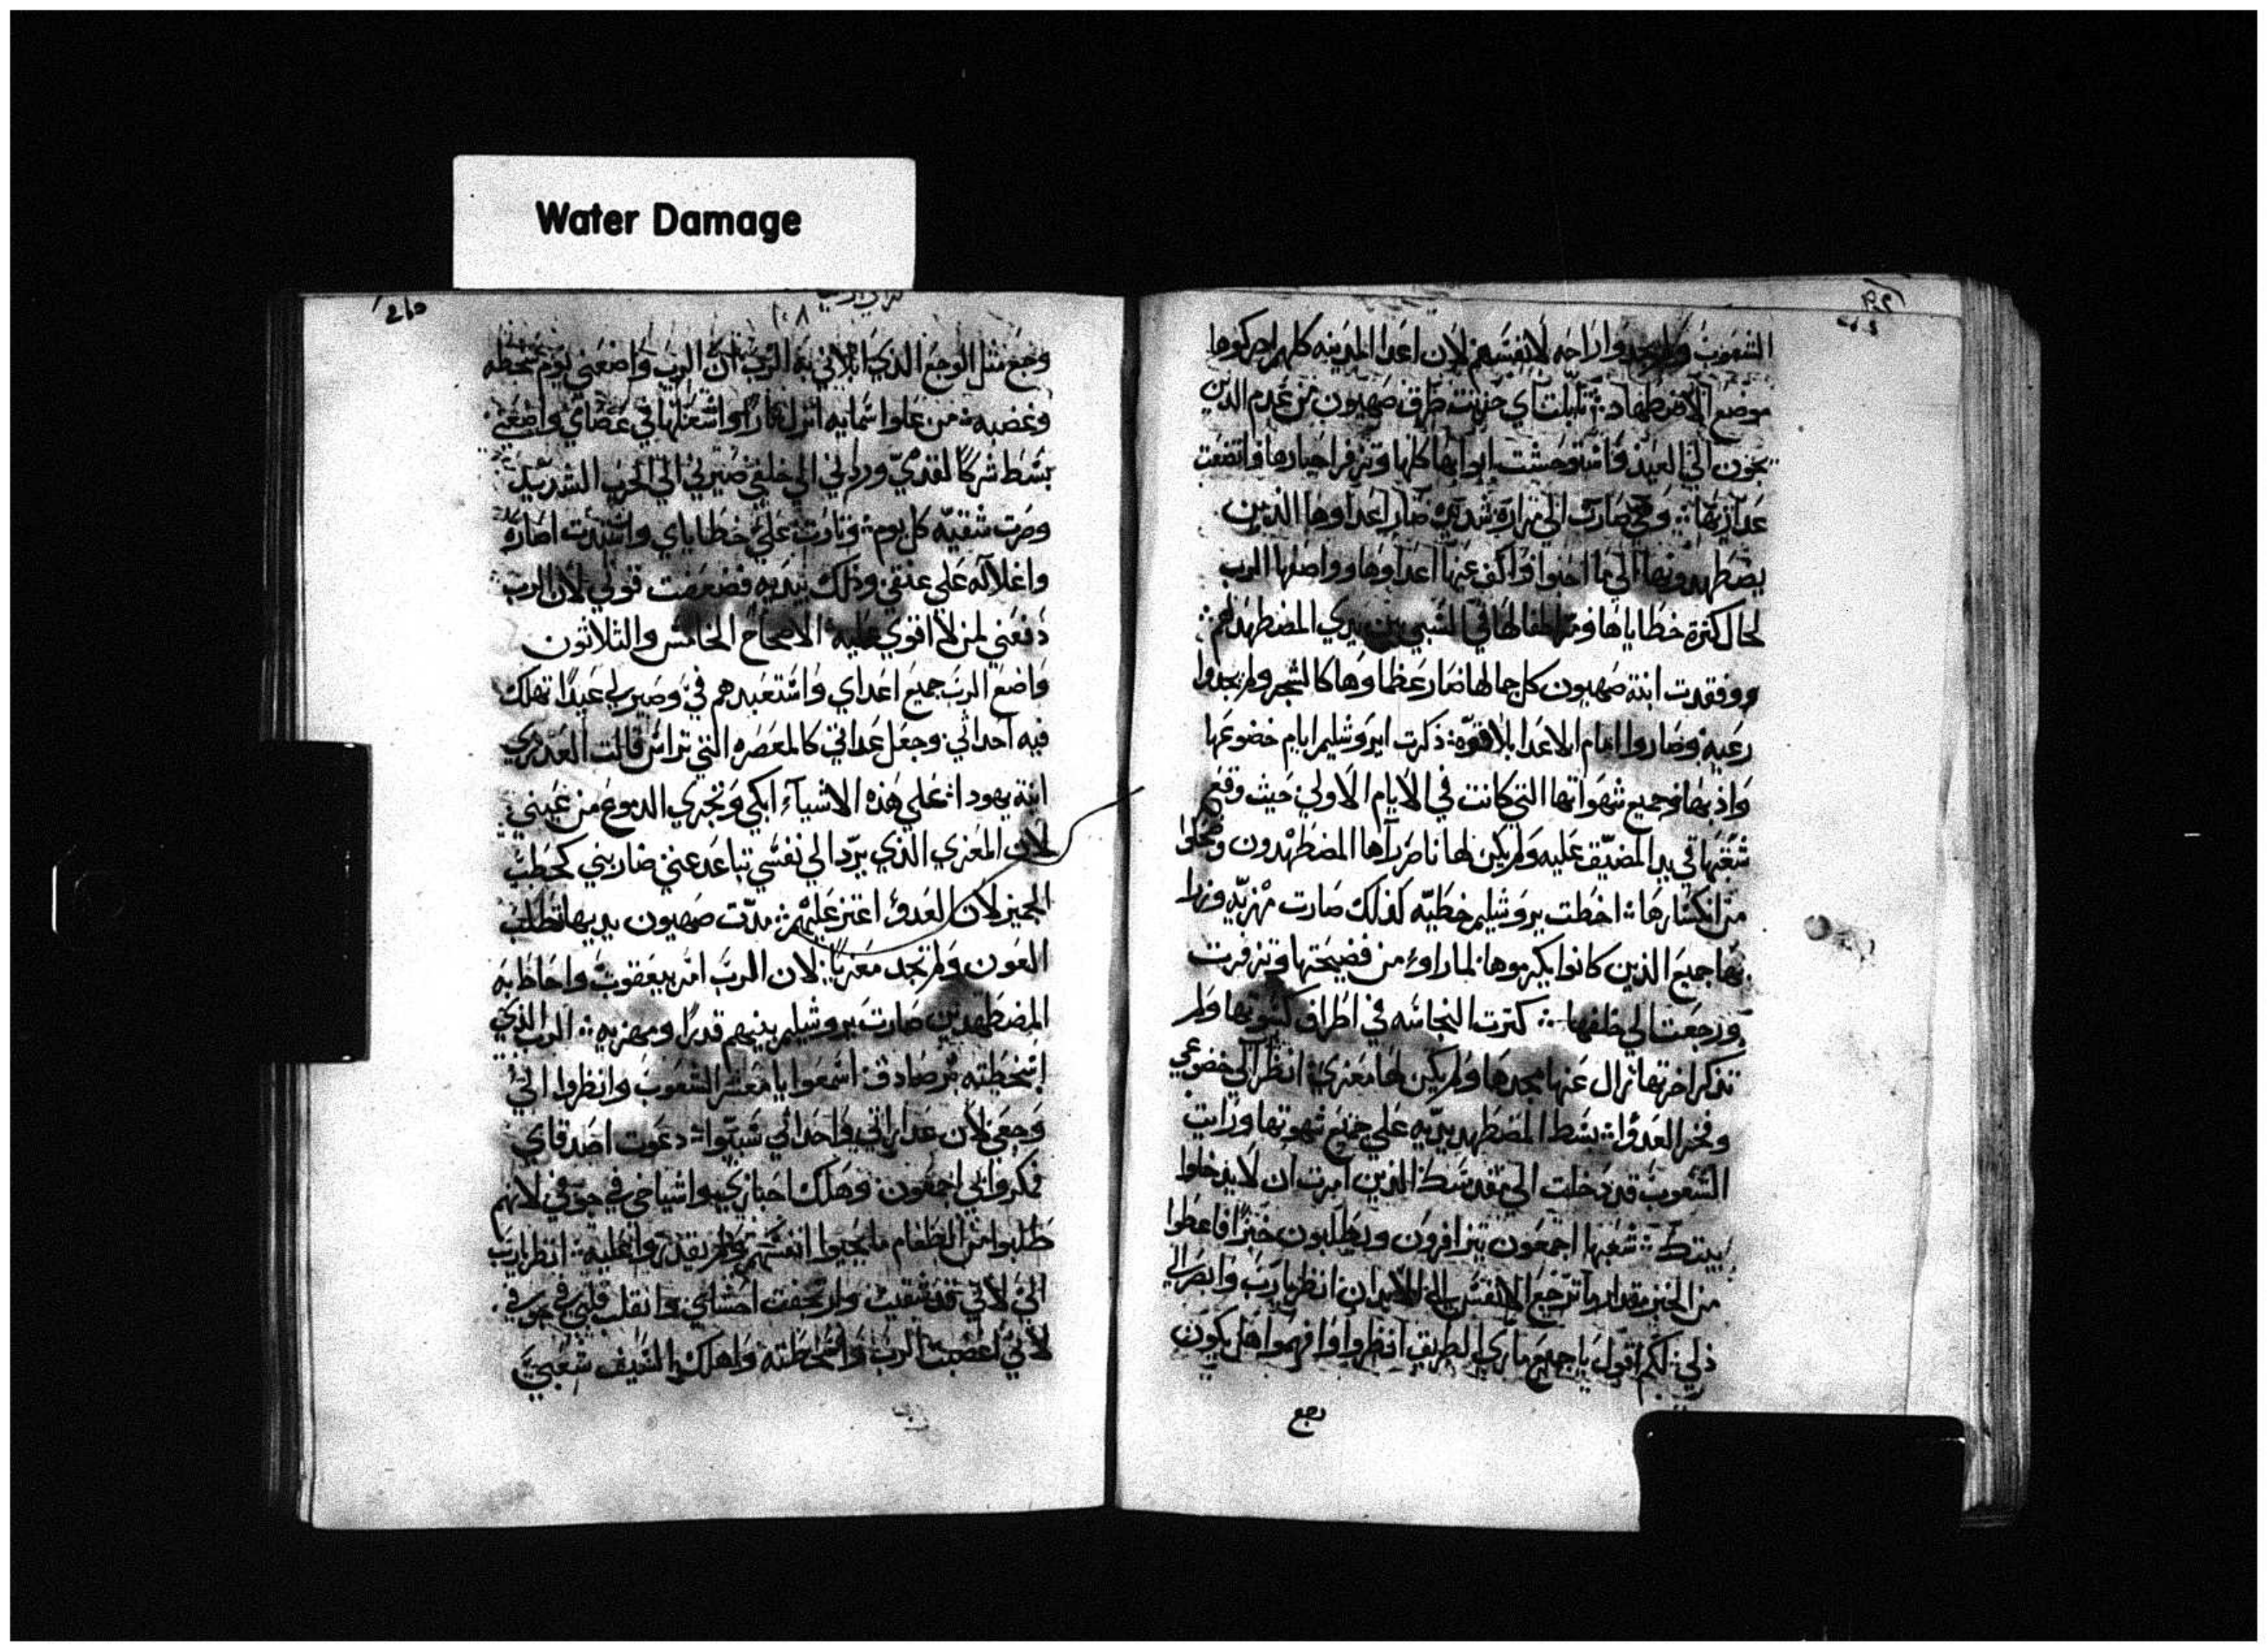 Water Damage
الشعوب ولم يجدوا راحه لانفسهم لان اعدا المدينه كلهم ادركوها
موضع الاضطهاد تلبلت اي حزينت طرق صهيون من عدم الذين
يحجون الي العيد واستوحشت ابوابها كلها وتزفر احبارها واتضعت
عداريها وهي صارت الي مراره شديده صار اعداوها الذين
يضطهدونها الي ما اخنوا واكف عنها اعداوها وواضعها الرب
لحال كثرة خطاياها ومر اطفالها في السبي بين يدي المضطهد لهم
وفقدت ابنة صهيون كل جمالها صار عظماوها كالشجر ولم يجدوا
رعيه وصاروا امام الاعدا بلا قوّه ذكرت ايروشليم ايام خضوعها
واذبها وجميع شهواتها التي كانت في الايام الاولي حيث وقع
شعبها في يد المضيّق عليه ولم يكن لها ناصر رآها المضطهدون وضحكوا
من انكسارها اخطت يروشليم خطيّه لذلك صارت مهزيّه وزرا
بها جميع الذين كانوا يكرموها لما راوا من فضيحتها وتزفرت
ورجعت الي خلفها كثرت النجاسه في اطراف كسوتها ولم
تذكر اخرتها زال عنها مجدها ولم يكن لها معزي انظر الي خضوعي
وفخر العدوا بسط المضطهد يديه علي جميع شهوتها ورات
الشعوب قد دخلت الي مقدسك الذين امرت ان لا يدخلوا
بيتك شعبها اجمعون يتزافرون ويطلبون خبزا فاعطوا
من الخبز مقدار ما ترجع الانفس الي الابدان انظر يارب وابصر الي
ذلي لكم اقول يا جميع ماري الطريق انظروا وافهموا هل يكون
وجع
215
١٠٨
وجع مثل الوجع الذي ابلاني به الرب ان الرب واضعني يوم سخطه
وغضبه من علوا سمايه انزل نارا واشعلها في عضاي واوجعني
بسط شركا لقدميّ وردني الي خلفي صيرني الي الخرب الشديد
وصرت شقيه كل يوم وثارت علي خطاياي واشتدت اصاره
واغلاله علي عنقي وذلك بيديه فضعفت قوتي لان الرب
دفعني لمن لا اقوي عليه الاصحاح الخامس والثلاثون
واضع الرب جميع اعداي واستعبدهم فيّ وصير لي عيدا تهلك
فيه احداثي وجعل عداني كالمعصره التي تداس قالت العدري
ابنة يهودا علي هذه الاشياء ابكي وتجري الدموع من عيني
لان المعزي الذي يردّ الي نفسي تباعد عني ضاربني كحطب
الجميز لان العدوّ اعتز عليهم مدّت صهيون يديها تطلب
العون ولم تجد معزيا لان الرب امر بيعقوب واحاط به
المضطهدين صارت يروشليم بينهم قدرا ومهزيه الرب الذي
اسخطته بر صادق اسمعوا يا معشر الشعوب وانظروا الي
وجعي لان عداراتي واحداثي سبيّوا دعوت اصدقاي
فمكروا بي اجمعون وهلك احباري واشياخي في جوفي لانهم
طلبوا من الطعام ما يحيوا انفسهم ولم يقدروا عليه انظر يارب
الي لاني قد شقيت وارتجفت احشاي وانقلب قلبي في جوفي
لاني اغضبت الرب واسخطته واهلك السيف شعبي